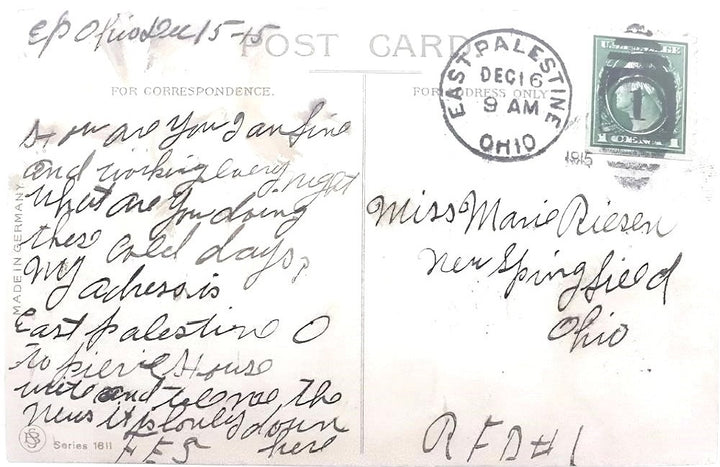 EP Ohio Dec 15-15
POST CARD
FOR CORRESPONDENCE.
FOR ADDRESS ONLY
EAST PALESTINE
DEC 16
9 AM
OHIO
1915
1
How are you I am fine
and working every night
what are you doing
these cold days,
My adress is
East Palestine O
to pierce House
write and tele me the
News it is lonely down
here
F.E.S
MADE IN GERMANY
Series 1611
Miss Marie Riesen
New Springfield
Ohio
RFD#1